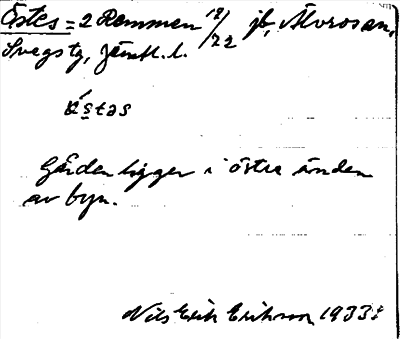 Östes = 2 Remmen 12/22 jb, Älvros sn,
Svegs tg, Jämtl. l.
östəs
Gården ligger i östra änden
av byn.
Nils Erik Erikson 1933